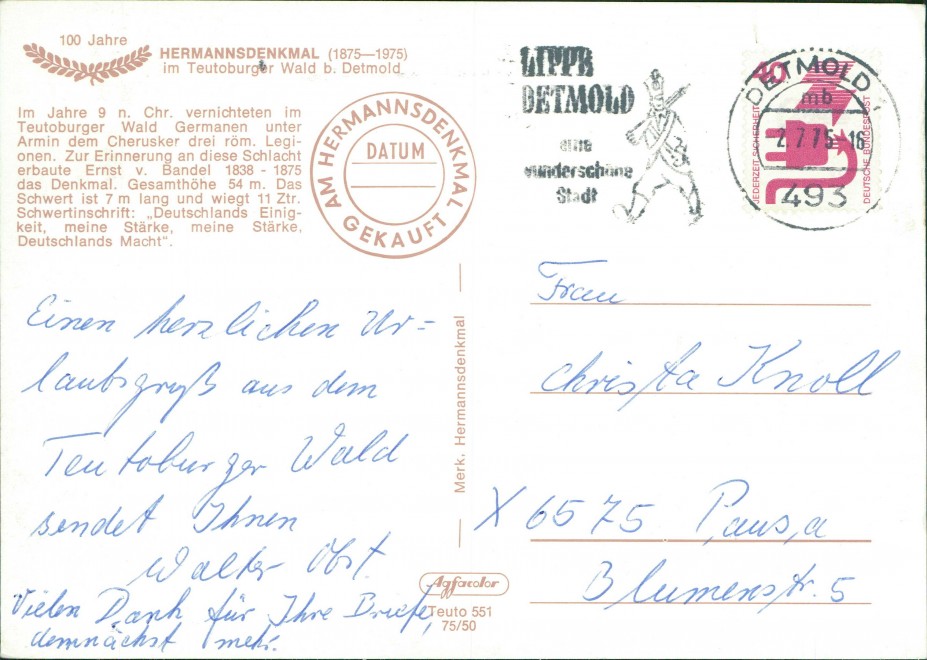 100 Jahre
HERMANNSDENKMAL (1875—1975)
im Teutoburger Wald b. Detmold
Im Jahre 9 n. Chr. vernichteten im
Teutoburger Wald Germanen unter
Armin dem Cherusker drei röm. Legi-
onen. Zur Erinnerung an diese Schlacht
erbaute Ernst v. Bandel 1838 - 1875
das Denkmal. Gesamthöhe 54 m. Das
Schwert ist 7 m lang und wiegt 11 Ztr.
Schwertinschrift: „Deutschlands Einig-
keit, meine Stärke, meine Stärke,
Deutschlands Macht".
AM HERMANNSDENKMAL
DATUM
GEKAUFT
LIPPE
DETMOLD
eine
wunderschöne
Stadt
DETMOLD
mb
2.7.75-16
493
40
JEDERZEIT SICHERHEIT
DEUTSCHE BUNDESPOST
Einen herzlichen Ur=
laubsgruß aus dem
Teutoburger Wald
sendet Ihnen
Walter Obst.
Vielen Dank für Ihre Briefe,
demnächst mehr.
Merk. Hermannsdenkmal
Agfacolor
Teuto 551
75/50
Frau
Christa Knoll
X 6575 Pausa
Blumenstr. 5